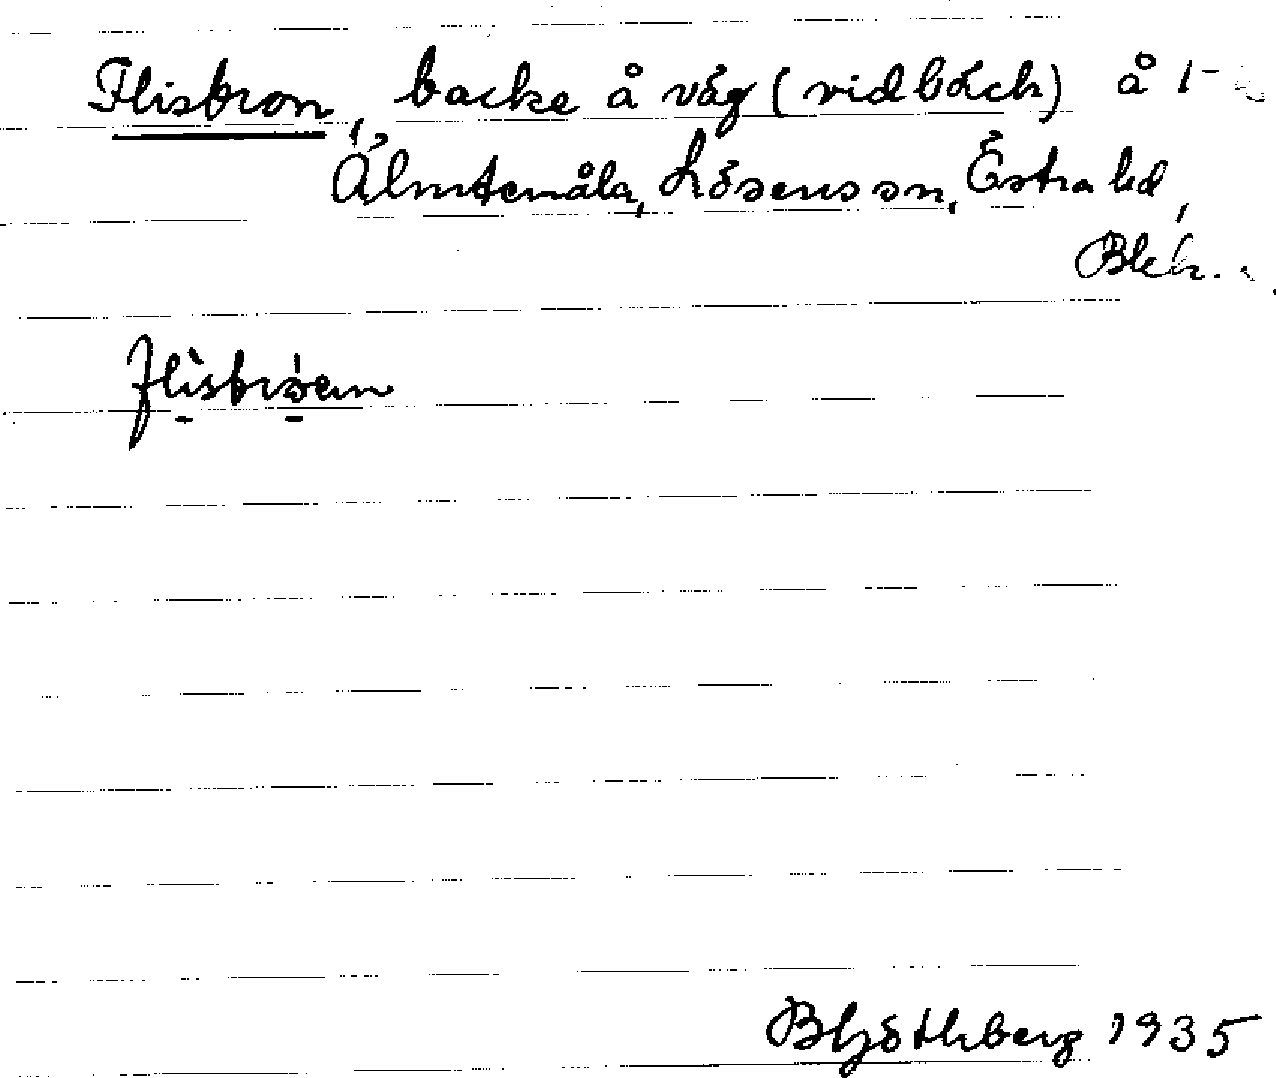 Flisbron, backe å väg (vid bäck) å 1-
Älmtemåla, Lösens sn, Östra hd,
Blek.
flisbroen
B Hjöthberg 1935